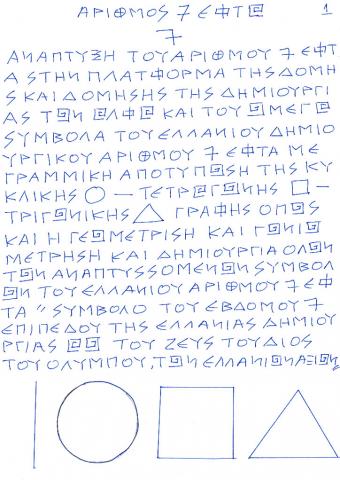 ΑΡΙΘΜΟΣ 7 ΕΦΤΑ 1
7
ΑΝΑΠΤΥΞΗ ΤΟΥ ΑΡΙΘΜΟΥ 7 ΕΦΤ
Α ΣΤΗΝ ΠΛΑΤΦΟΡΜΑ ΤΗΣ ΔΟΜΗ
Σ ΚΑΙ ΔΟΜΗΣΗΣ ΤΗΣ ΔΗΜΙΟΥΡΓΙ
ΑΣ ΤΩΝ ΑΛΦΑ ΚΑΙ ΤΟΥ ΩΜΕΓΑ
ΣΥΜΒΟΛΑ ΤΟΥ ΕΛΛΑΝΙΟΥ ΔΗΜΙΟ
ΥΡΓΙΚΟΥ ΑΡΙΘΜΟΥ 7 ΕΦΤΑ ΜΕ
ΓΡΑΜΜΙΚΗ ΑΠΟΤΥΠΩΣΗ ΤΗΣ ΚΥ
ΚΛΙΚΗΣ ◯ — ΤΕΤΡΑΓΩΝΗΣ □ —
ΤΡΙΓΩΝΙΚΗΣ △ ΓΡΑΦΗΣ ΟΠΩΣ
ΚΑΙ Η ΓΕΩΜΕΤΡΙΣΗ ΚΑΙ ΓΩΝΙΩ
ΜΕΤΡΗΣΗ ΚΑΙ ΔΗΜΙΟΥΡΓΙΑ ΟΛΩΝ
ΤΩΝ ΑΝΑΠΤΥΣΣΟΜΕΝΩΝ ΣΥΜΒΟΛ
ΩΝ ΤΟΥ ΕΛΛΑΝΙΟΥ ΑΡΙΘΜΟΥ 7 ΕΦ
ΤΑ " ΣΥΜΒΟΛΟ ΤΟΥ ΕΒΔΟΜΟΥ 7
ΕΠΙΠΕΔΟΥ ΤΗΣ ΕΛΛΑΝΙΑΣ ΔΗΜΙΟΥ
ΡΓΙΑΣ Α Ω ΤΟΥ ΖΕΥΣ ΤΟΥ ΔΙΟΣ
ΤΟΥ ΟΛΥΜΠΟΥ, ΤΩΝ ΕΛΛΑΝΙΩΝ ΑΞΙΩΝ